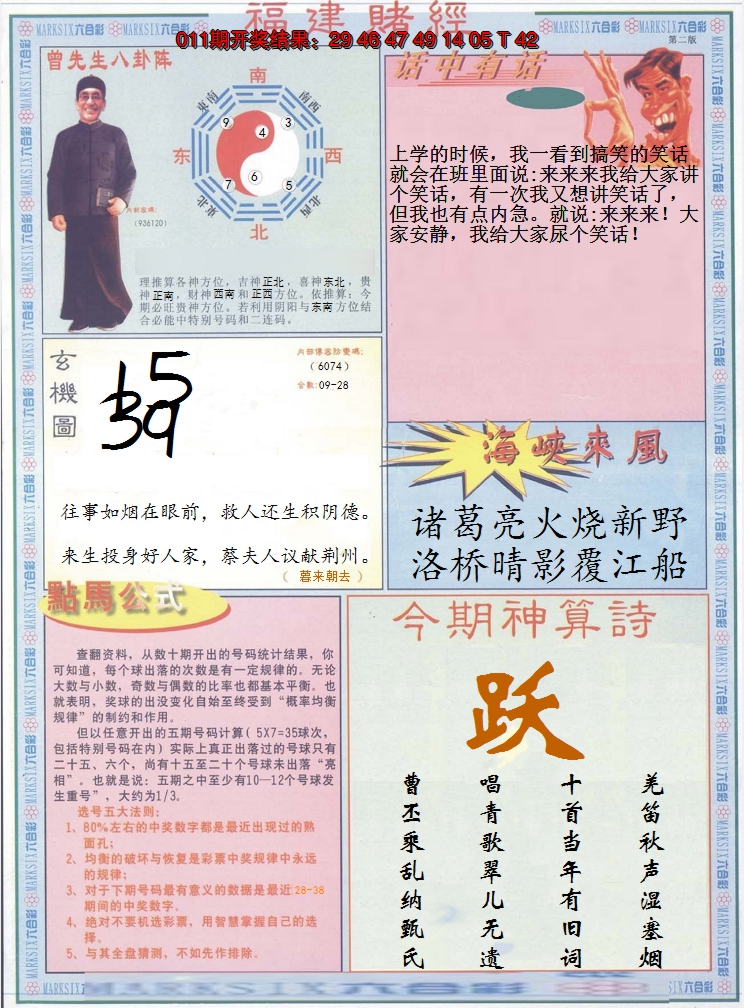 福建賭經
011期开奖结果：29 46 47 49 14 05 T 42
MARKSIX六合彩
第二版
曾先生八卦阵
南
东南
南西
9
4
3
东
西
7
6
5
東北
北西
北
内部密碼:
(936120)
理推算各神方位，吉神正北，喜神东北，贵
神正南，财神西南和正西方位。依推算：今
期必旺贵神方位。若利用阴阳与东南方位结
合必能中特别号码和二连码。
话中有话
上学的时候，我一看到搞笑的笑话
就会在班里面说:来来来我给大家讲
个笑话，有一次我又想讲笑话了，
但我也有点内急。就说:来来来！大
家安静，我给大家尿个笑话！
玄機圖
内部傳密防變碼:
(6074)
合數:09-28
往事如烟在眼前，救人还生积阴德。
来生投身好人家，蔡夫人议献荆州。
（ 暮来朝去 ）
海峽來風
诸葛亮火烧新野
洛桥晴影覆江船
點馬公式
查翻资料，从数十期开出的号码统计结果，你
可知道，每个球出落的次数是有一定规律的。无论
大数与小数，奇数与偶数的比率也都基本平衡。也
就表明，奖球的出没变化自始至终受到“概率均衡
规律”的制约和作用。
但以任意开出的五期号码计算( 5X7=35球次，
包括特别号码在内) 实际上真正出落过的号球只有
二十五、六个，尚有十五至二十个号球未出落“亮
相”。也就是说：五期之中至少有10—12个号球发
生重号”，大约为1/3。
选号五大法则:
1、80%左右的中奖数字都是最近出现过的熟
面孔；
2、均衡的破坏与恢复是彩票中奖规律中永远
的规律；
3、对于下期号码最有意义的数据是最近 28-38
期间的中奖数字。
4、绝对不要机选彩票，用智慧掌握自己的选
择。
5、与其全盘猜测，不如先作排除。
今期神算詩
跃
羌笛秋声湿塞烟
十首当年有旧词
唱青歌翠儿无遗
曹丕乘乱纳甄氏